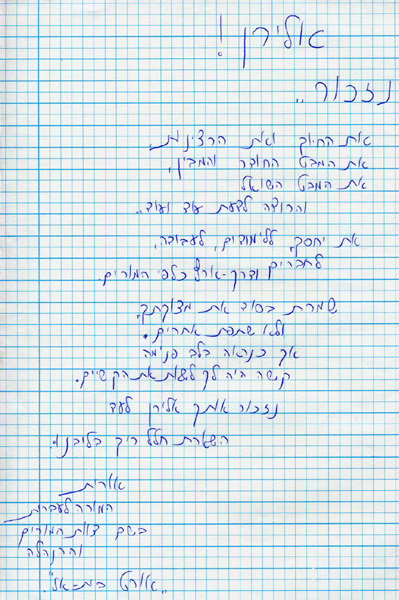 אלירן!
נזכור..
את החיוך ואת הרצינות,
את המבט החודר והמבין,
את המבט השואל
והרוצה לדעת עוד ועוד..
את יחסך, ללימודים, לעבודה,
לחברים ודרך-ארץ כלפי המורים.
שמרת בסוד את מצוקתך,
ולא שתפת אחרים.
אך כנראה בלב פנימה
קשה היה לך לשאת את הקשיים.
נזכור אותך אלירן לעד
השארת חלל ריק בליבנו.
אורית
המורה לעברית
בשם צוות המורים
וההנהלה
"אורט בת-ים".